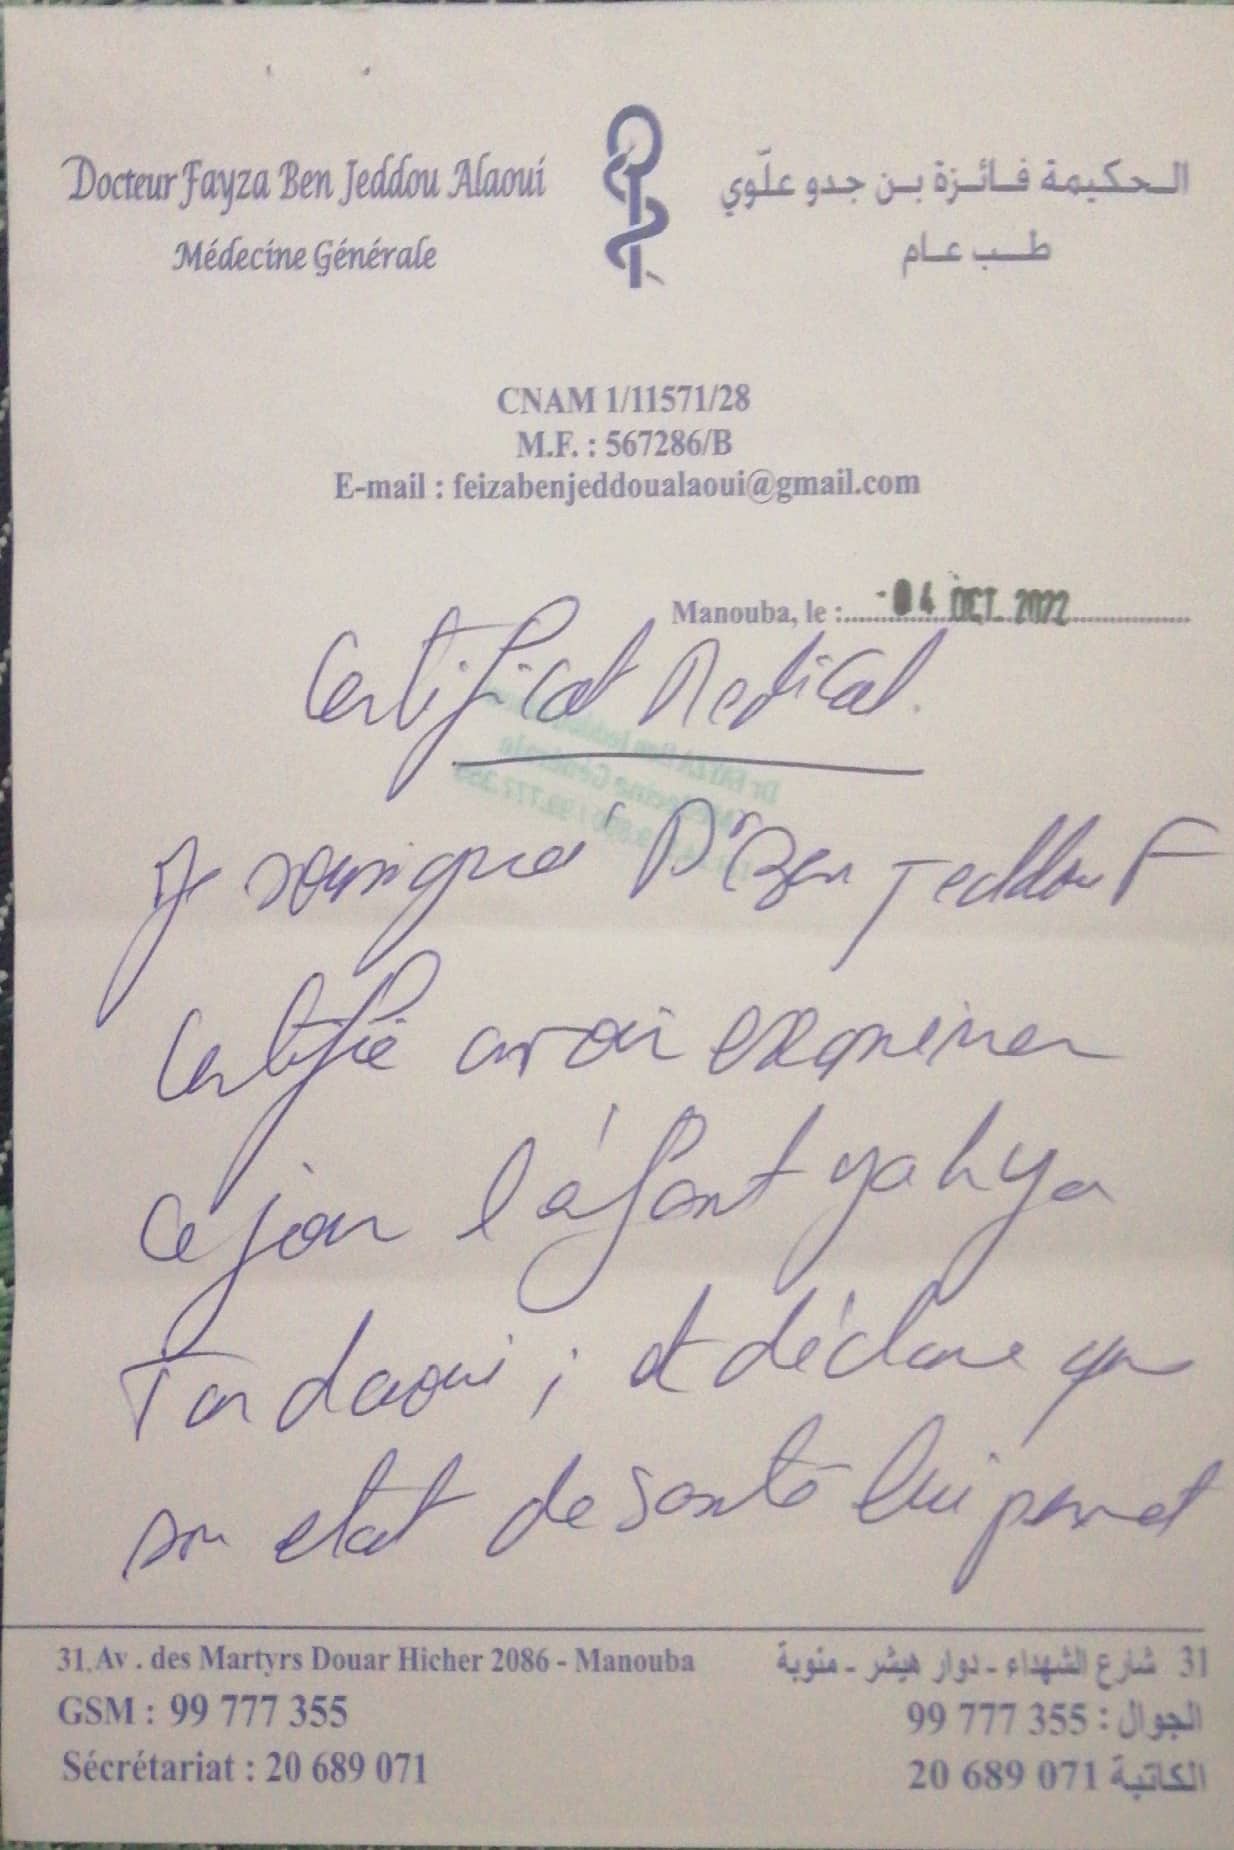 Docteur Fayza Ben Jeddou Alaoui
Médecine Générale
الحكيمة فائزة بن جدو علّوي
طب عام
CNAM 1/11571/28
M.F. : 567286/B
E-mail : feizabenjeddoualaoui@gmail.com
Manouba, le : - 04 OCT. 2022
Certificat Medical.
Je soussigné Dr Ben Jeddou F
Certifie avoir examiner
Ce jour l'enfant yahya
; et déclare que
son etat de santé lui permet
31, Av . des Martyrs Douar Hicher 2086 - Manouba
GSM : 99 777 355
Sécrétariat : 20 689 071
31 شارع الشهداء - دوار هيشر - منوبة
الجوال : 99 777 355
الكاتبة 20 689 071